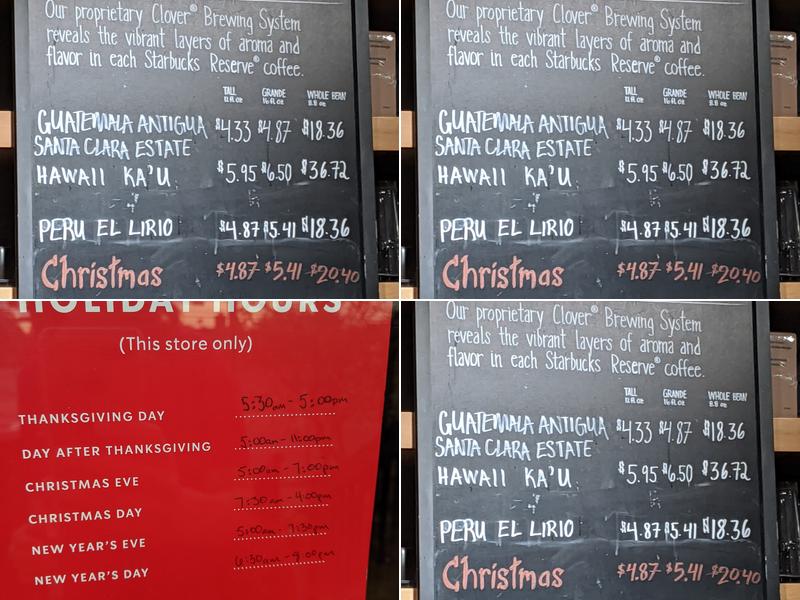 Our proprietary Clover® Brewing System
reveals the vibrant layers of aroma and
flavor in each Starbucks Reserve® coffee.
TALL GRANDE WHOLE BEAN
12 fl oz 16 fl oz 8.8 oz
GUATEMALA ANTIGUA $4.33 $4.87 $18.36
SANTA CLARA ESTATE
HAWAII KA'U $5.95 $6.50 $36.72
PERU EL LIRIO $4.87 $5.41 $18.36
Christmas $4.87 $5.41 $20.40
Our proprietary Clover® Brewing System
reveals the vibrant layers of aroma and
flavor in each Starbucks Reserve® coffee.
TALL GRANDE WHOLE BEAN
12 fl oz 16 fl oz 8.8 oz
GUATEMALA ANTIGUA $4.33 $4.87 $18.36
SANTA CLARA ESTATE
HAWAII KA'U $5.95 $6.50 $36.72
PERU EL LIRIO $4.87 $5.41 $18.36
Christmas $4.87 $5.41 $20.40
HOLIDAY HOURS
(This store only)
THANKSGIVING DAY 5:30am - 5:00pm
DAY AFTER THANKSGIVING 5:00am - 11:00pm
CHRISTMAS EVE 5:00am - 7:00pm
CHRISTMAS DAY 7:30am - 4:00pm
NEW YEAR'S EVE 5:00am - 7:30pm
NEW YEAR'S DAY 6:30am
Our proprietary Clover® Brewing System
reveals the vibrant layers of aroma and
flavor in each Starbucks Reserve® coffee.
TALL GRANDE WHOLE BEAN
12 fl oz 16 fl oz 8.8 oz
GUATEMALA ANTIGUA $4.33 $4.87 $18.36
SANTA CLARA ESTATE
HAWAII KA'U $5.95 $6.50 $36.72
PERU EL LIRIO $4.87 $5.41 $18.36
Christmas $4.87 $5.41 $20.40